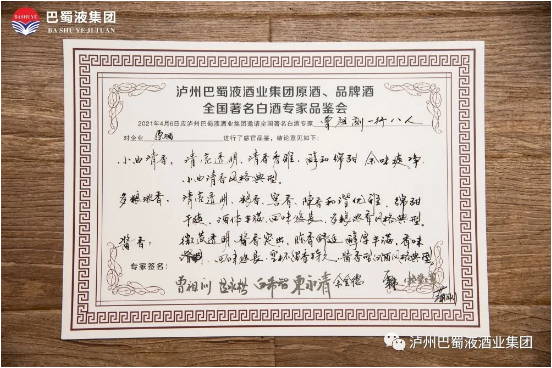 BASHUYE
巴蜀液集团
BA SHU YE JI TUAN
泸州巴蜀液酒业集团原酒、品牌酒
全国著名白酒专家品鉴会
2021年4月6日应泸州巴蜀液酒业集团邀请全国著名白酒专家 曾祖训一行八人
对企业 原酒 进行了感官品鉴,结论意见如下:
小曲清香: 清亮透明、清香秀雅、醇和绵甜 余味爽净
小曲清香风格典型。
多粮浓香: 清亮透明、粮香、窖香、陈香和谐优雅、绵甜
干爽、酒体丰满、回味悠长、多粮浓香风格典型。
酱香: 微黄透明、酱香突出、陈香舒适 醇厚丰满、香味
回味悠长、空杯留香持久、酱香型风格典型
专家签名:
泸州巴蜀液酒业集团